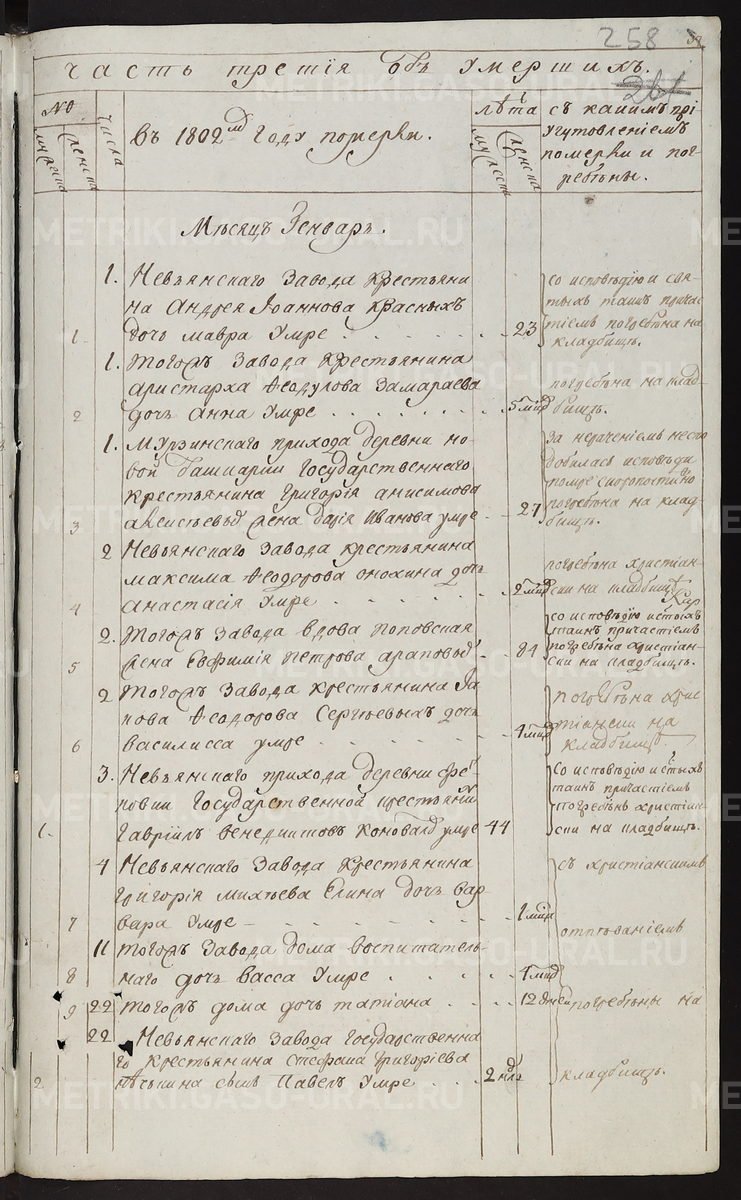 258
Часть третія объ Умершихъ.
№
мужеска
женска
числа
Въ 1802мъ Году померли.
лѣта
мужеска
женска
съ какимъ прі
Уготовленіемъ
померли и пог
ребены.
Мѣсяцъ Генварь.
1. Невьянскаго Завода Крестьяни
на Андрея Іоаннова Красныхъ
1 дочь мавра Умре . . . 23
со исповѣдію и свя
тыхъ таинъ причас
тіемъ погребена на
кладбищѣ.
1. Тогожъ Завода Крестьянина
аристарха Ѳеодулова Замараева
2 дочь Анна Умре . . . 5 мцъ
погребена на клад
бищѣ.
1. Мурзинскаго прихода деревни но
вой Башкарки Государственнаго
крестьянина Григорія анисимова
3 жена дарія Иванова умре - 27
за нераченіемъ неспо
добилась исповѣди
помре скоропостижно
погребена на клад
бищѣ.
2 Невьянскаго Завода крестьянина
максима Ѳеодорова онохина дочь
4 анастасія Умре . . . 2 мцъ
погребена христіан
ски на кладбищѣ
2. Тогожъ Завода вдова Поповская
5 жена Евфимія Петрова араповыхъ - 84
со исповѣдію истыхъ
таинъ причастіемъ
погребена христіан
ски на кладбищѣ.
2 Тогожъ Завода крестьянина Іа
кова Ѳеодорова Сергѣевыхъ дочь
6 василисса умре - - - 4 мцъ
погребена хрис
тіански на
кладбищѣ
3. Невьянскаго прихода деревни фе
новки Государственной крестьянинъ
1. Гавріилъ венедиктовъ Коноваловъ умре 44
Со исповѣдію и стыхъ
таинъ причастіемъ
погребенъ христіан
ски на кладбищѣ.
4 Невьянскаго Завода Крестьянина
Григорія михѣева Елина дочь вар
7 вара Умре - - - 1 мцъ
съ христіанскимъ
отпѣваніемъ
11 тогожъ Завода дома воспитатель
8 наго дочь васса Умре . . . 4 мцъ
9 22 тогожъ дома дочь татіана . . . 12 дней
погребены на
22 Невьянскаго Завода Государственна
го Крестьянина Стефана Григоріева
2 сынъ Павелъ Умре . . . 2 нд
кладбищѣ.
METRIKI.GASO-URAL.RU